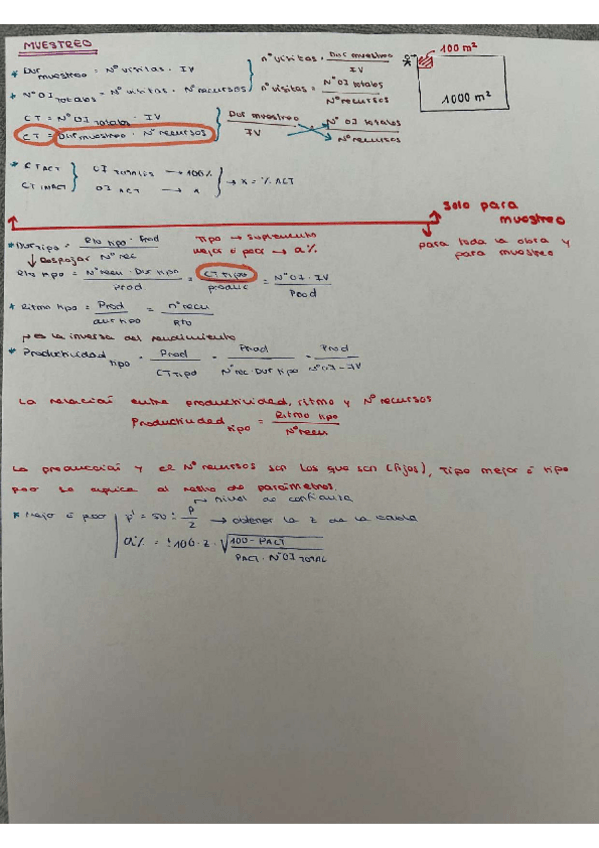 MUESTREO
* Dur muestreo = Nº visitas · IV
nº visitas = Dur muestreo / IV
* Nº OI totales = Nº visitas · Nº recursos
nº visitas = Nº OI totales / Nº recursos
100 m²
1000 m²
CT = Nº OI totales · IV
CT = Dur muestreo · Nº recursos
Dur muestreo / IV
Nº OI totales / Nº recursos
* CT ACT
CT INACT
OI TOTALES → 100%
OI ACT → x
→ x = % ACT
Solo para muestreo
para toda la obra y para muestreo
* Dur tipo = Rto tipo · Prod / Nº rec
Tipo → suplemento
mejor o peor → a%
↓ Despejar
Rto tipo = Nº recu · Dur tipo / Prod = CT tipo / produc = Nº OI · IV / Prod
* Ritmo tipo = Prod / dur tipo = nº recu / Rto
es la inversa del rendimiento
* Productividad tipo = Prod / CT tipo = Prod / Nº rec · Dur tipo = Prod / Nº OI - IV
La relación entre productividad, ritmo y Nº recursos
Productividad tipo = Ritmo tipo / Nº recu
La producción y el Nº recursos son los que son (fijos), tipo mejor o tipo
peor se aplica al resto de parámetros.
→ nivel de confianza
* Mejor o peor
p' = 50 ± p / 2 → obtener la z de la tabla
a% = ± 100 · z · √ 100 - PACT / PACT · Nº OI TOTAL